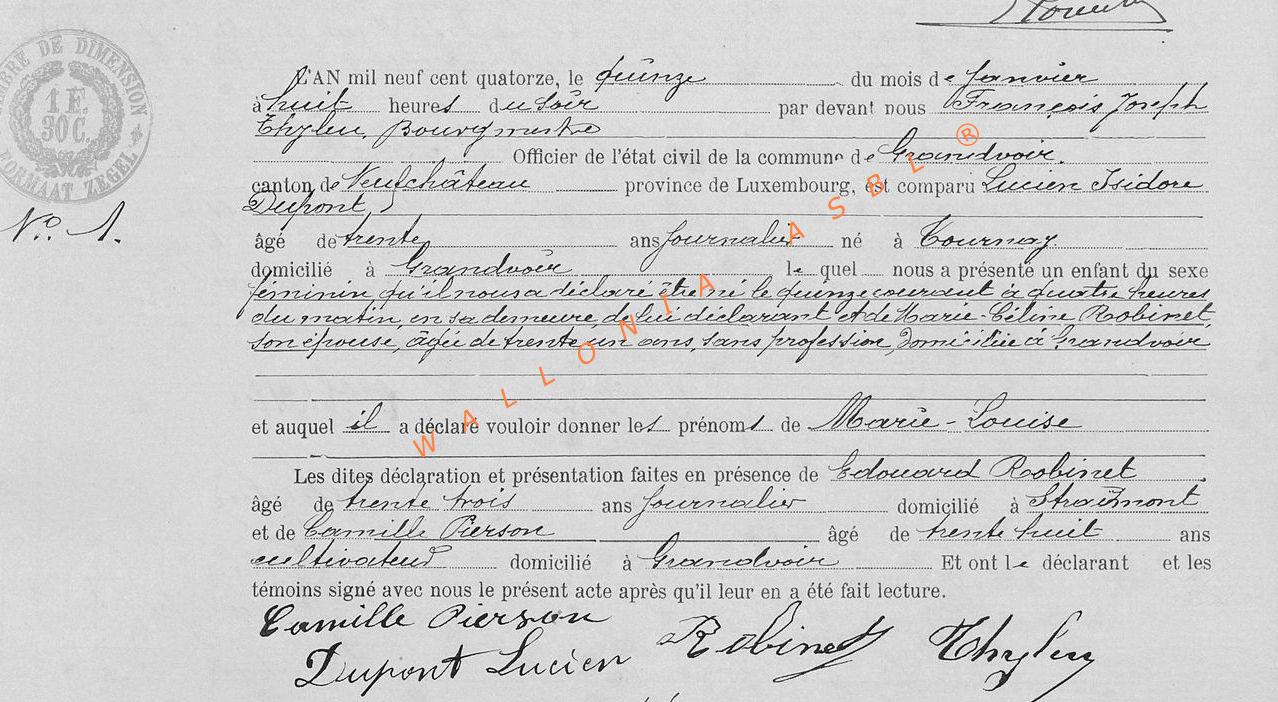 TIMBRE DE DIMENSION
1 F.
30 C.
FORMAAT ZEGEL
L'AN mil neuf cent quatorze, le quinze du mois de Janvier
à huit heures du Soir par devant nous François Joseph
Thyleu, Bourgmestre
Officier de l'état civil de la commune de Grandvoir.
canton de Neufchâteau province de Luxembourg, est comparu Lucien Isidore
Dupont,
No. 1.
âgé de trente ans Journalier né à Tournay
domicilié à Grandvoir lequel nous a présenté un enfant du sexe
féminin qu'il nous a déclaré être né le quinze courant à quatre heures
du matin, en sa demeure, de lui déclarant et de Marie-Céline Robinet,
son épouse, âgée de trente un ans, sans profession, domiciliée à Grandvoir
et auquel il a déclaré vouloir donner les prénoms de Marie-Louise
Les dites déclaration et présentation faites en présence de Edouard Robinet
âgé de trente trois ans Journalier domicilié à Straimont
et de Camille Pierson âgé de trente huit ans
cultivateur domicilié à Grandvoir Et ont le déclarant et les
témoins signé avec nous le présent acte après qu'il leur en a été fait lecture.
Camille Pierson
Dupont Lucien Robinet Thyleu
WALLONIA ASBL ®